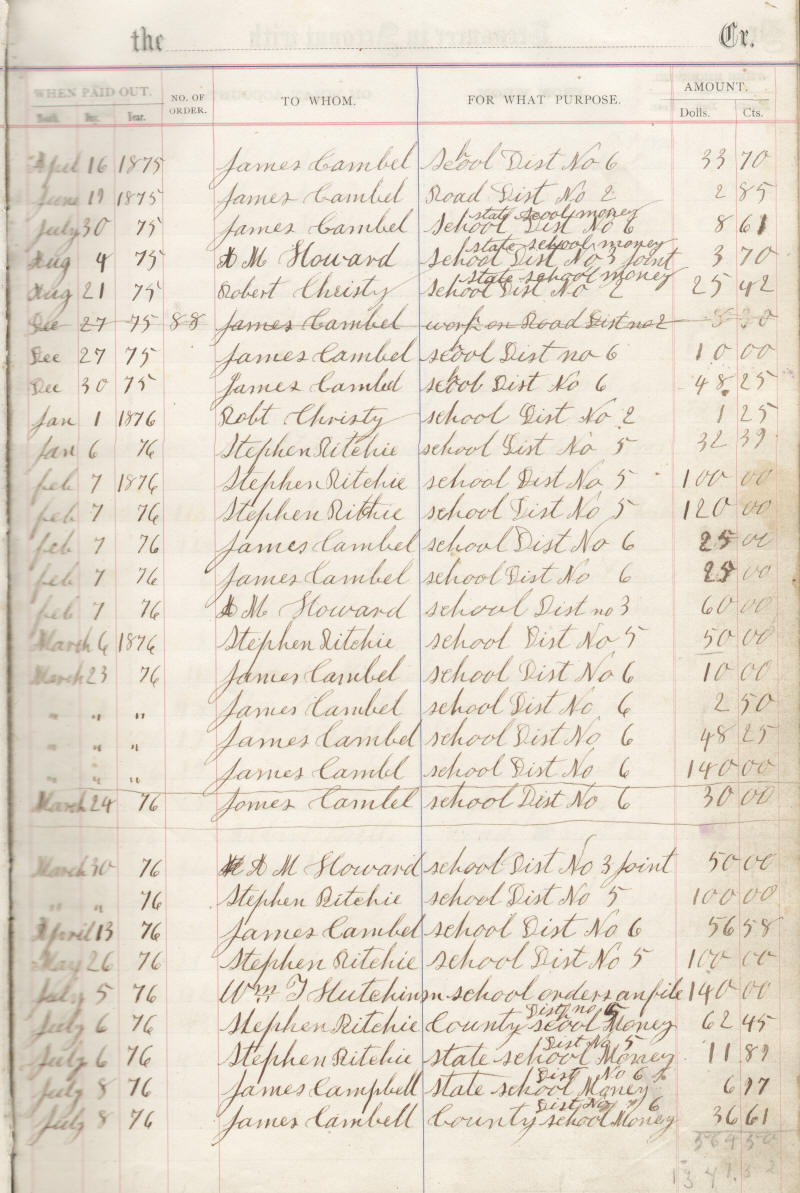 the Cr.
WHEN PAID OUT. NO. OF ORDER. TO WHOM. FOR WHAT PURPOSE. AMOUNT.
Month. Day. Year. Dolls. Cts.
April 16 1875 James Cambel School Dist No 6 33 70
June 19 1875 James Cambel Road Dist No 2 2 85
state scool money
July 30 75 James Cambel School Dist No 6 8 61
state school money
Aug 4 75 A M Howard school Dist No 3 Joint 3 70
state school money
Aug 21 75 Robert Christy school Dist No 2 25 42
Dec 27 75 88 James Cambel work on Road Dist no 2
Dec 27 75 James Cambel school Dist no 6 10 00
Dec 30 75 James Cambel school Dist No 6 48 25
Jan 1 1876 Robt Christy school Dist No 2 1 25
Jan 6 76 Stephen Ritchie school Dist No 5 32 39
feb 7 1876 Stephen Ritchie school Dist No 5 100 00
feb 7 76 Stephen Ritchie school Dist No 5 120 00
feb 7 76 James Cambel school Dist No 6 25 00
feb 7 76 James Cambel school Dist No 6 25 00
feb 7 76 A M Howard school Dist no 3 60 00
March 6 1876 Stephen Ritchie school Dist No 5 50 00
March 23 76 James Cambel school Dist No 6 10 00
" " " James Cambel school Dist No 6 2 50
" " " James Cambel school Dist No 6 48 25
" " " James Cambl school Dist No 6 140 00
March 24 76 James Cambel school Dist No 6 30 00
March 30 76 A M Howard school Dist No 3 Joint 50 00
" " 76 Stephen Ritchie school Dist No 5 100 00
April 13 76 James Cambel school Dist No 6 56 58
May 26 76 Stephen Ritchie school Dist No 5 100 00
July 5 76 Wm T Hutchinson school orders on file 140 00
Dist no 5
July 6 76 Stephen Ritchie County scool Money 62 45
Dist No 5
July 6 76 Stephen Ritchie state school Money 11 89
Dist No 6
July 8 76 James Campbell state school Money 6 97
Dist No 6
July 8 76 James Cambell County school Money 36 61
569 50
1341.32